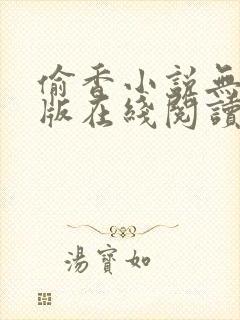 偷香小說無
版在綫閱讀
湯寶如